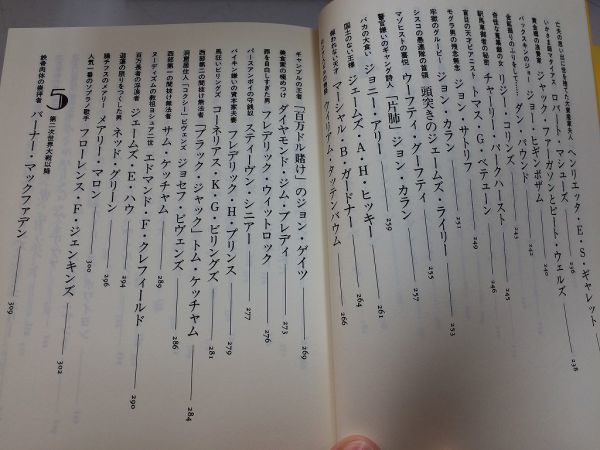 亡夫の思い出に世を捧げた大資産家夫人 ヘンリエッタ・E・S・ギャレット 238
いかさま師マタイアス ロバート・マシューズ
黄金郷の浪費家 ジャック・ファーガソンとピート・ウェルズ
バックスキンのジョー ジョー・ヒギンボザム 241
金鉱掘りのふりをして…… ダン・パウンド 243
奇怪な寛幕敵の女 リジー・コリンズ 245
駅馬車御者の秘密 チャーリー・パークハースト 246
盲目の天才ピアニスト トマス・G・ベテューン 249
モグラ男の残念無念 ジョン・サトリフ 251
牢獄のグルーピー ジョン・カラン 253
シスコの愚連隊の首領 頭突きのジェームズ・ライリー 255
マゾヒストの喜悦 ウーフティ・グーフティ 257
警官嫌いのギャング詩人 「片肺」ジョン・カラン 259
バカの大食い ジョニー・アリー 261
国土のない王様 ジェームズ・A・H・ヒッキー 264
報われない天才 マーシャル・B・ガードナー
ウィリアム・タッテンバウム 266
ギャンブルの王者 「百万ドル賭け」のジョン・ゲイツ 269
美食家の極めつけ ダイヤモンド・ジム・ブレディ 273
罪を自白しすぎた男 フレデリック・ウィットロック 276
バースプレンボイの守銭奴 スティーヴン・シニアー 277
バイキン嫌いの資本家夫妻 フレデリック・H・プリンス 279
馬狂いビリングズ コーネリアス・K・G・ビリングズ 281
西部第二の間抜け無法者 「ブラック・ジャック」トム・ケッチャム 284
洞窟居住人「コクシー」ピヴェンズ ジョセフ・ピヴェンズ 286
西部第一の間抜け無法者 サム・ケッチャム 289
ヌーディズムの教祖ヨシュア二世 エドマンド・F・クレフィールド 290
百万長者の浮浪者 ジェームズ・E・ハウ 294
迷路の照りをつくした男 ネッド・グリーン 296
腸チフスのメアリー メアリー・マロン 300
人気一番のソプラノ歌手 フローレンス・F・ジェンキンズ 302
5 第二次世界大戦以降
鉄骨肉体の崇拝者 バーナー・マックファデン 309